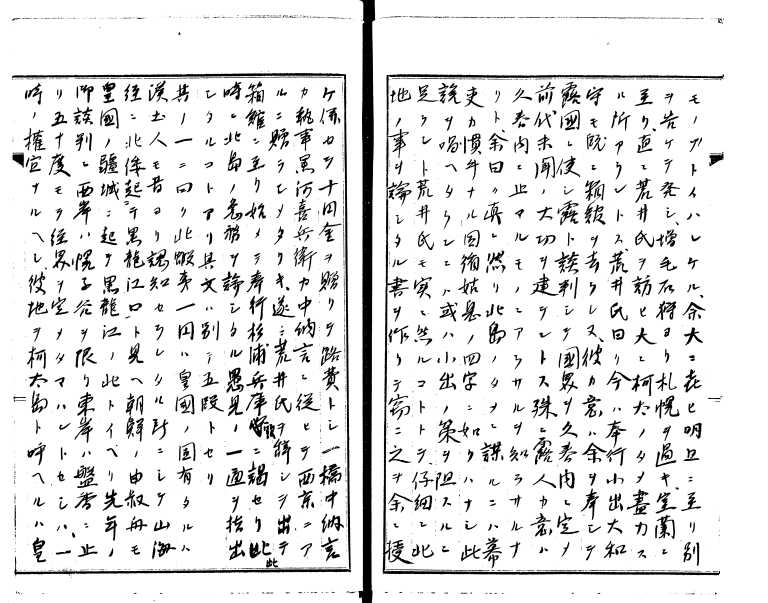 モノブトイハレケル、余大ニ㐂ヒ明日ニ至リ別
ヲ告ケテ発シ、増毛石狩ヨリ札幌ヲ過キ室蘭ニ
至リ、直ニ荒井氏ヲ訪ヒ大ニ柯太ノタメ盡力ス
ル所アラントス荒井氏曰ク今ハ奉行小出大和
守モ既ニ箱館ヲ去ラレ又彼カ意ハ余ヲ奉シテ
露國ニ使シ露ト談判シテ國界ヲ久春内ニ定メ
前代未聞ノ大功ヲ建テントス殊ニ露人カ意ハ
久春内ニ止マルモノニアラサルヲ知ラサルナ
リト余曰ク真ニ然リ此島ノタメニ謀ルニハ幕
吏カ慣用ナル因循姑息ノ四字ニ如クハナシ此
説ヲ唱ヘタランニハ或ハ小出ノ策ヲ阻スルニ
足ラント荒井氏モ実ニ然ルコトトテ仔細ニ此
地ノ事ヲ論シタル書ヲ作リテ窃ニ之ヲ余ニ授
ケ孫カヲ十円金ヲ贈リテ路費トシ一橋中納言
カ執事黒河喜兵衛カ中納言ニ従ヒテ西京ニア
ルニ贈ラシメタリキ、遂ニ荒井氏ヲ辞シテ出テ
箱館ニ至リ始メテ奉行杉浦兵庫頭ニ謁セリ此
時ニ此島ノ急務ヲ論シタル愚見ノ一通ヲ指出
シタルコトアリ其文ハ別ニ五段トセリ
其ノ一ニ曰ク此蝦夷一円ハ皇國ノ固有タルハ
漢土人モ昔ヨリ認知セラレタル所ニシテ山海
経ニ北倭起テ黒龍江口ト見ヘ朝鮮ノ申叔舟モ
皇國ノ疆域ニ起ヲ黒龍江ノ此トイヘリ先年ノ
御談判ニ西岸ハ幌子谷ヲ限リ東岸ハ盤香ニ止
リ五十度モヲ経界ヲ定メタマハレトセシハ、一
時ノ権宜ナルヘシ彼地ヲ柯太島ト呼ヘルハ皇